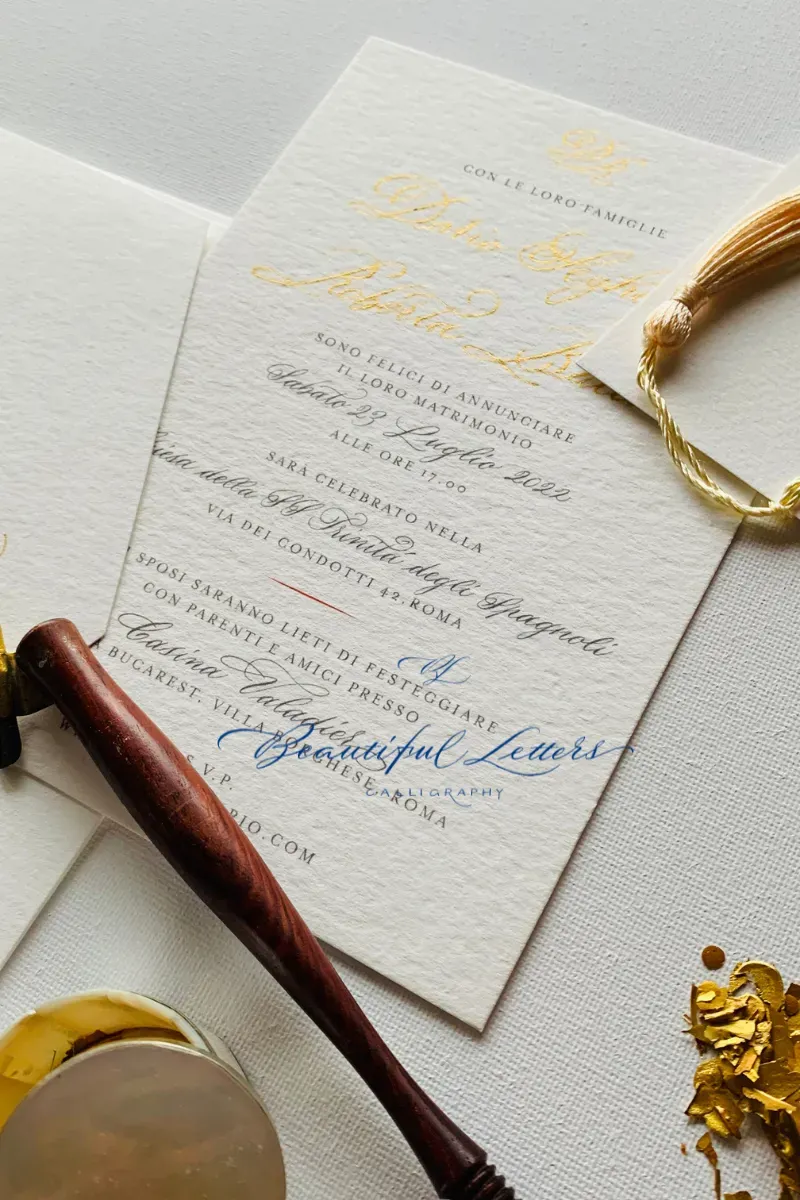 CON LE LORO FAMIGLIE
Roberta
SONO FELICI DI ANNUNCIARE
IL LORO MATRIMONIO
Sabato 23 Luglio 2022
ALLE ORE 17.00
SARÀ CELEBRATO NELLA
della SS Trinitá degli Spagnoli
VIA DEI CONDOTTI 42, ROMA
SPOSI SARANNO LIETI DI FESTEGGIARE
CON PARENTI E AMICI PRESSO
Casina Valadier
BUCAREST, VILLA BORGHESE, ROMA
S.V.P.
.COM
Beautiful Letters
CALLIGRAPHY